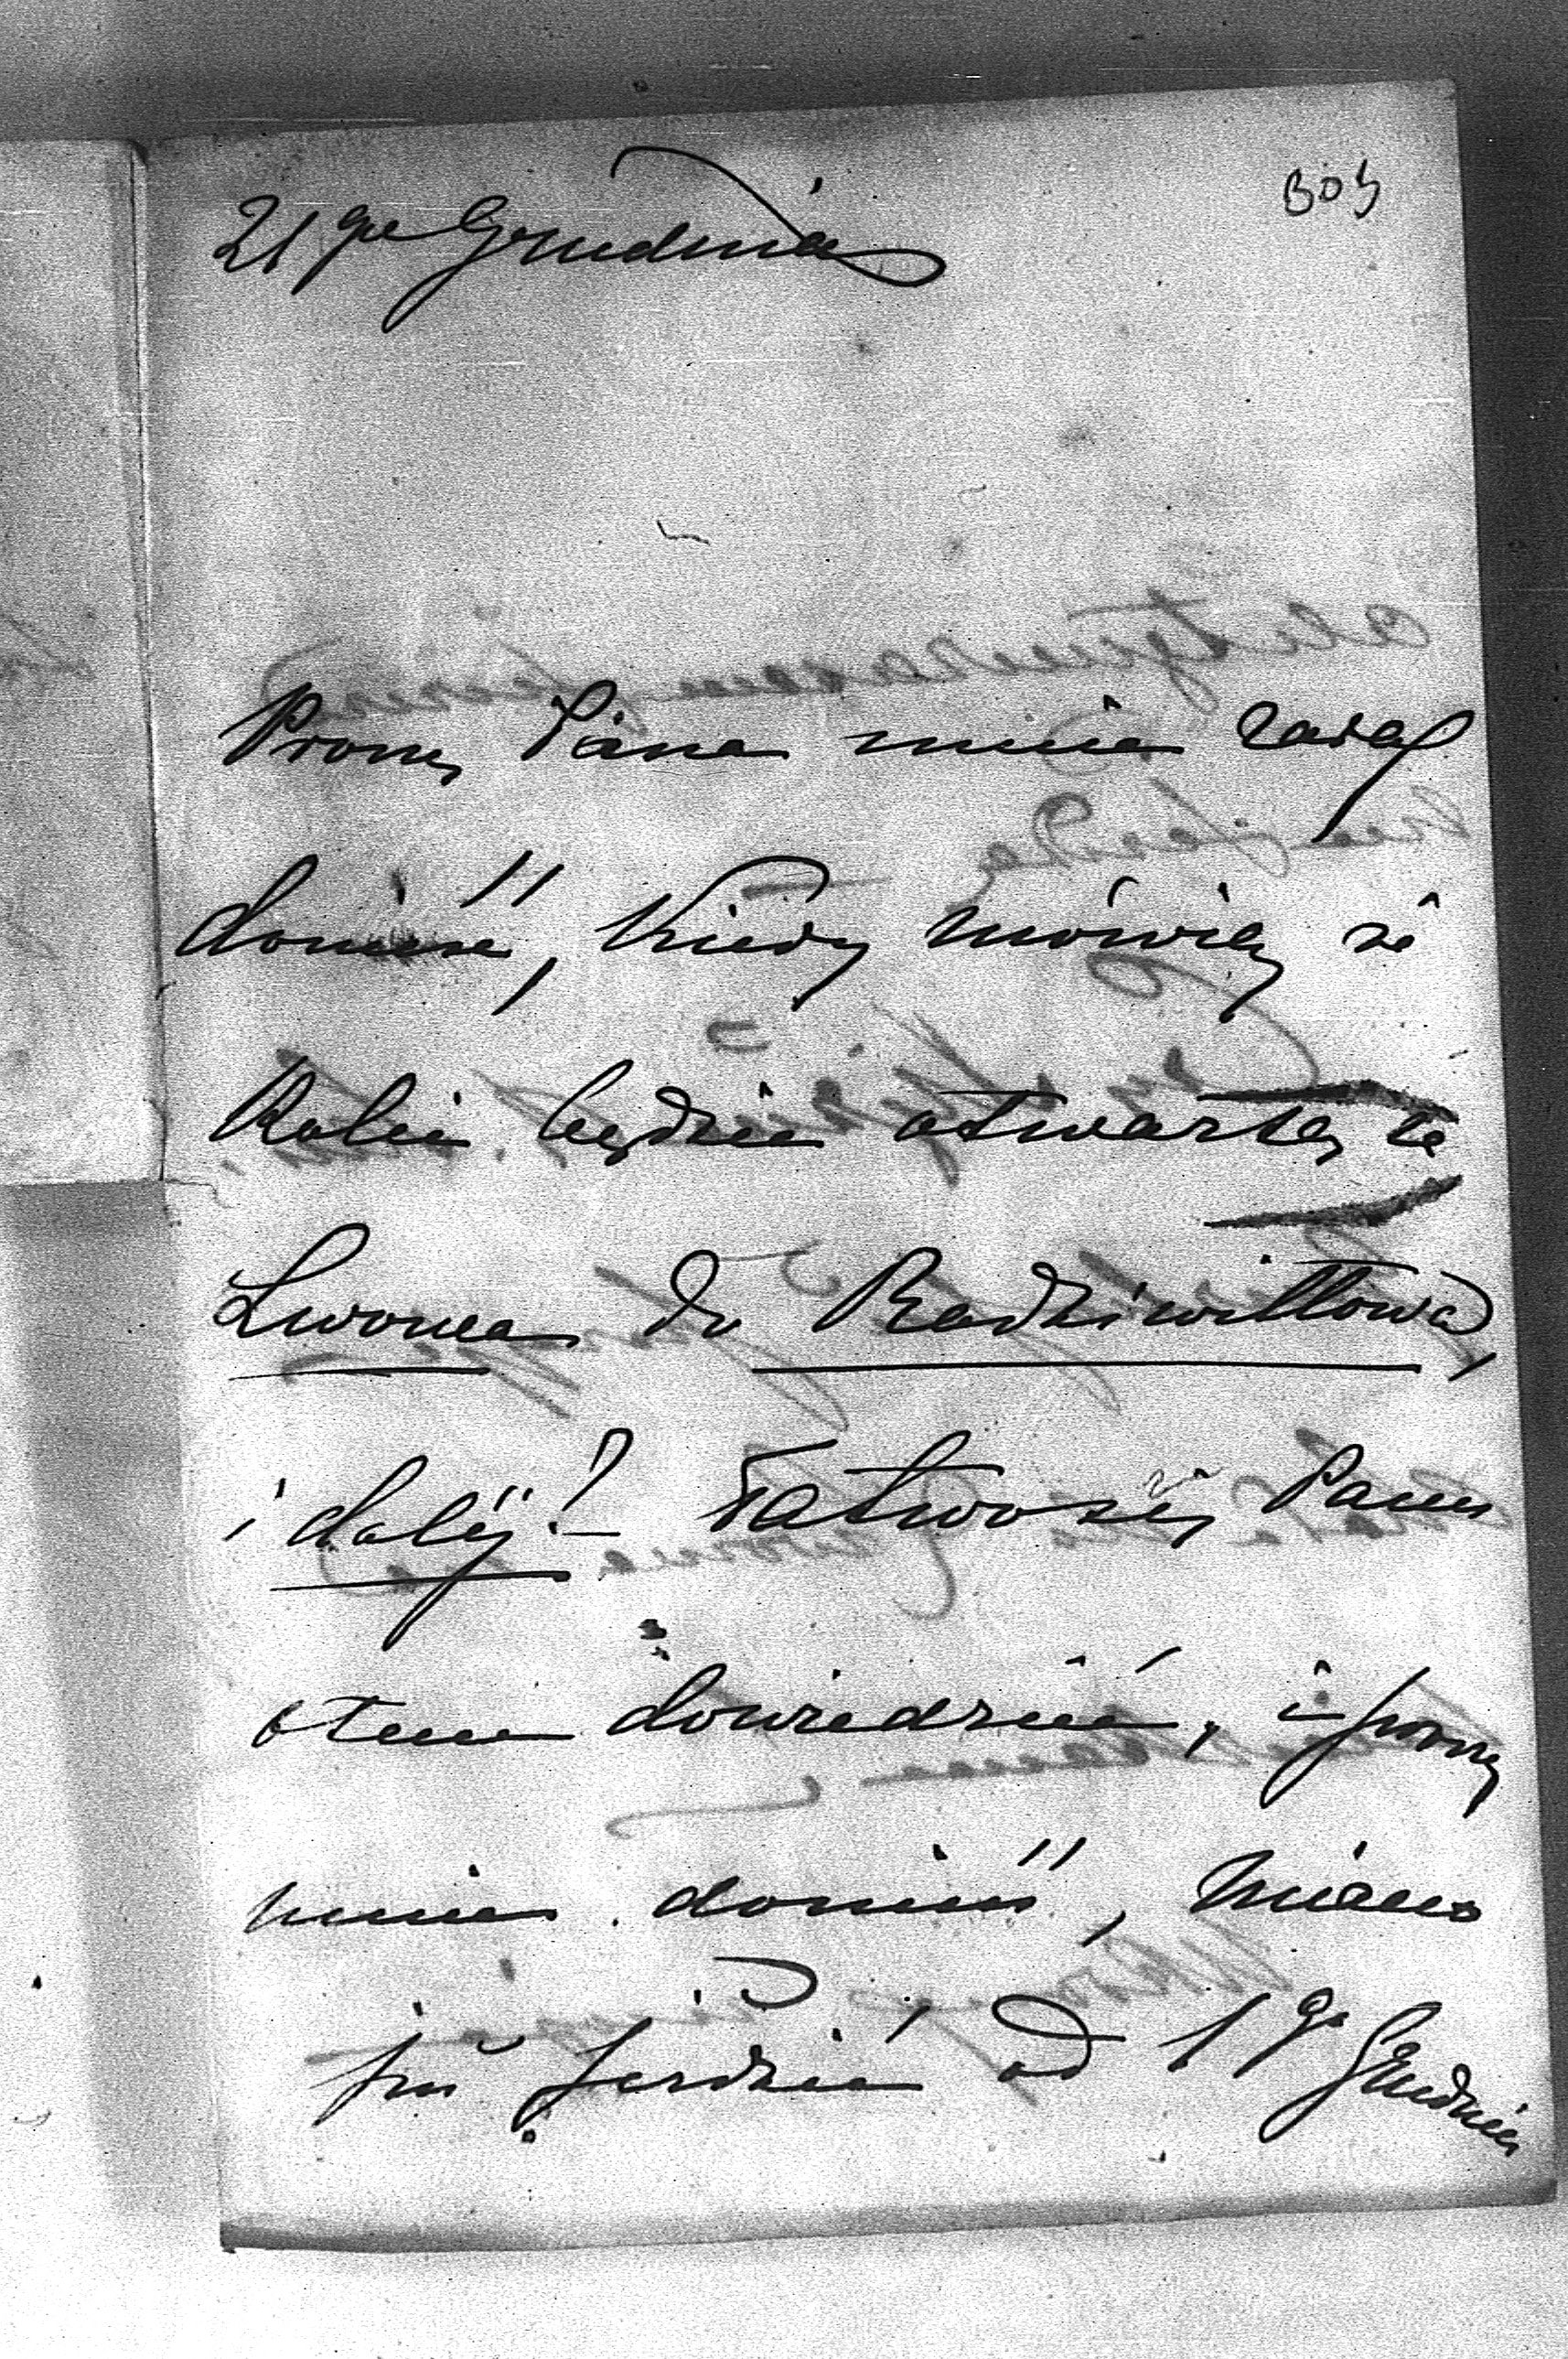 303
21go Grudnia
Proszę Pana mnie zaraz
donieść, kiedy mówią że
Kolei będzie otwartą ze
Lwowa do Radziwiłłowa,
i daléj? Łatwo się Panu
o tem dowiedzieć, i proszę
mnie donieść, miano
już jeździć od 1go Grudnia